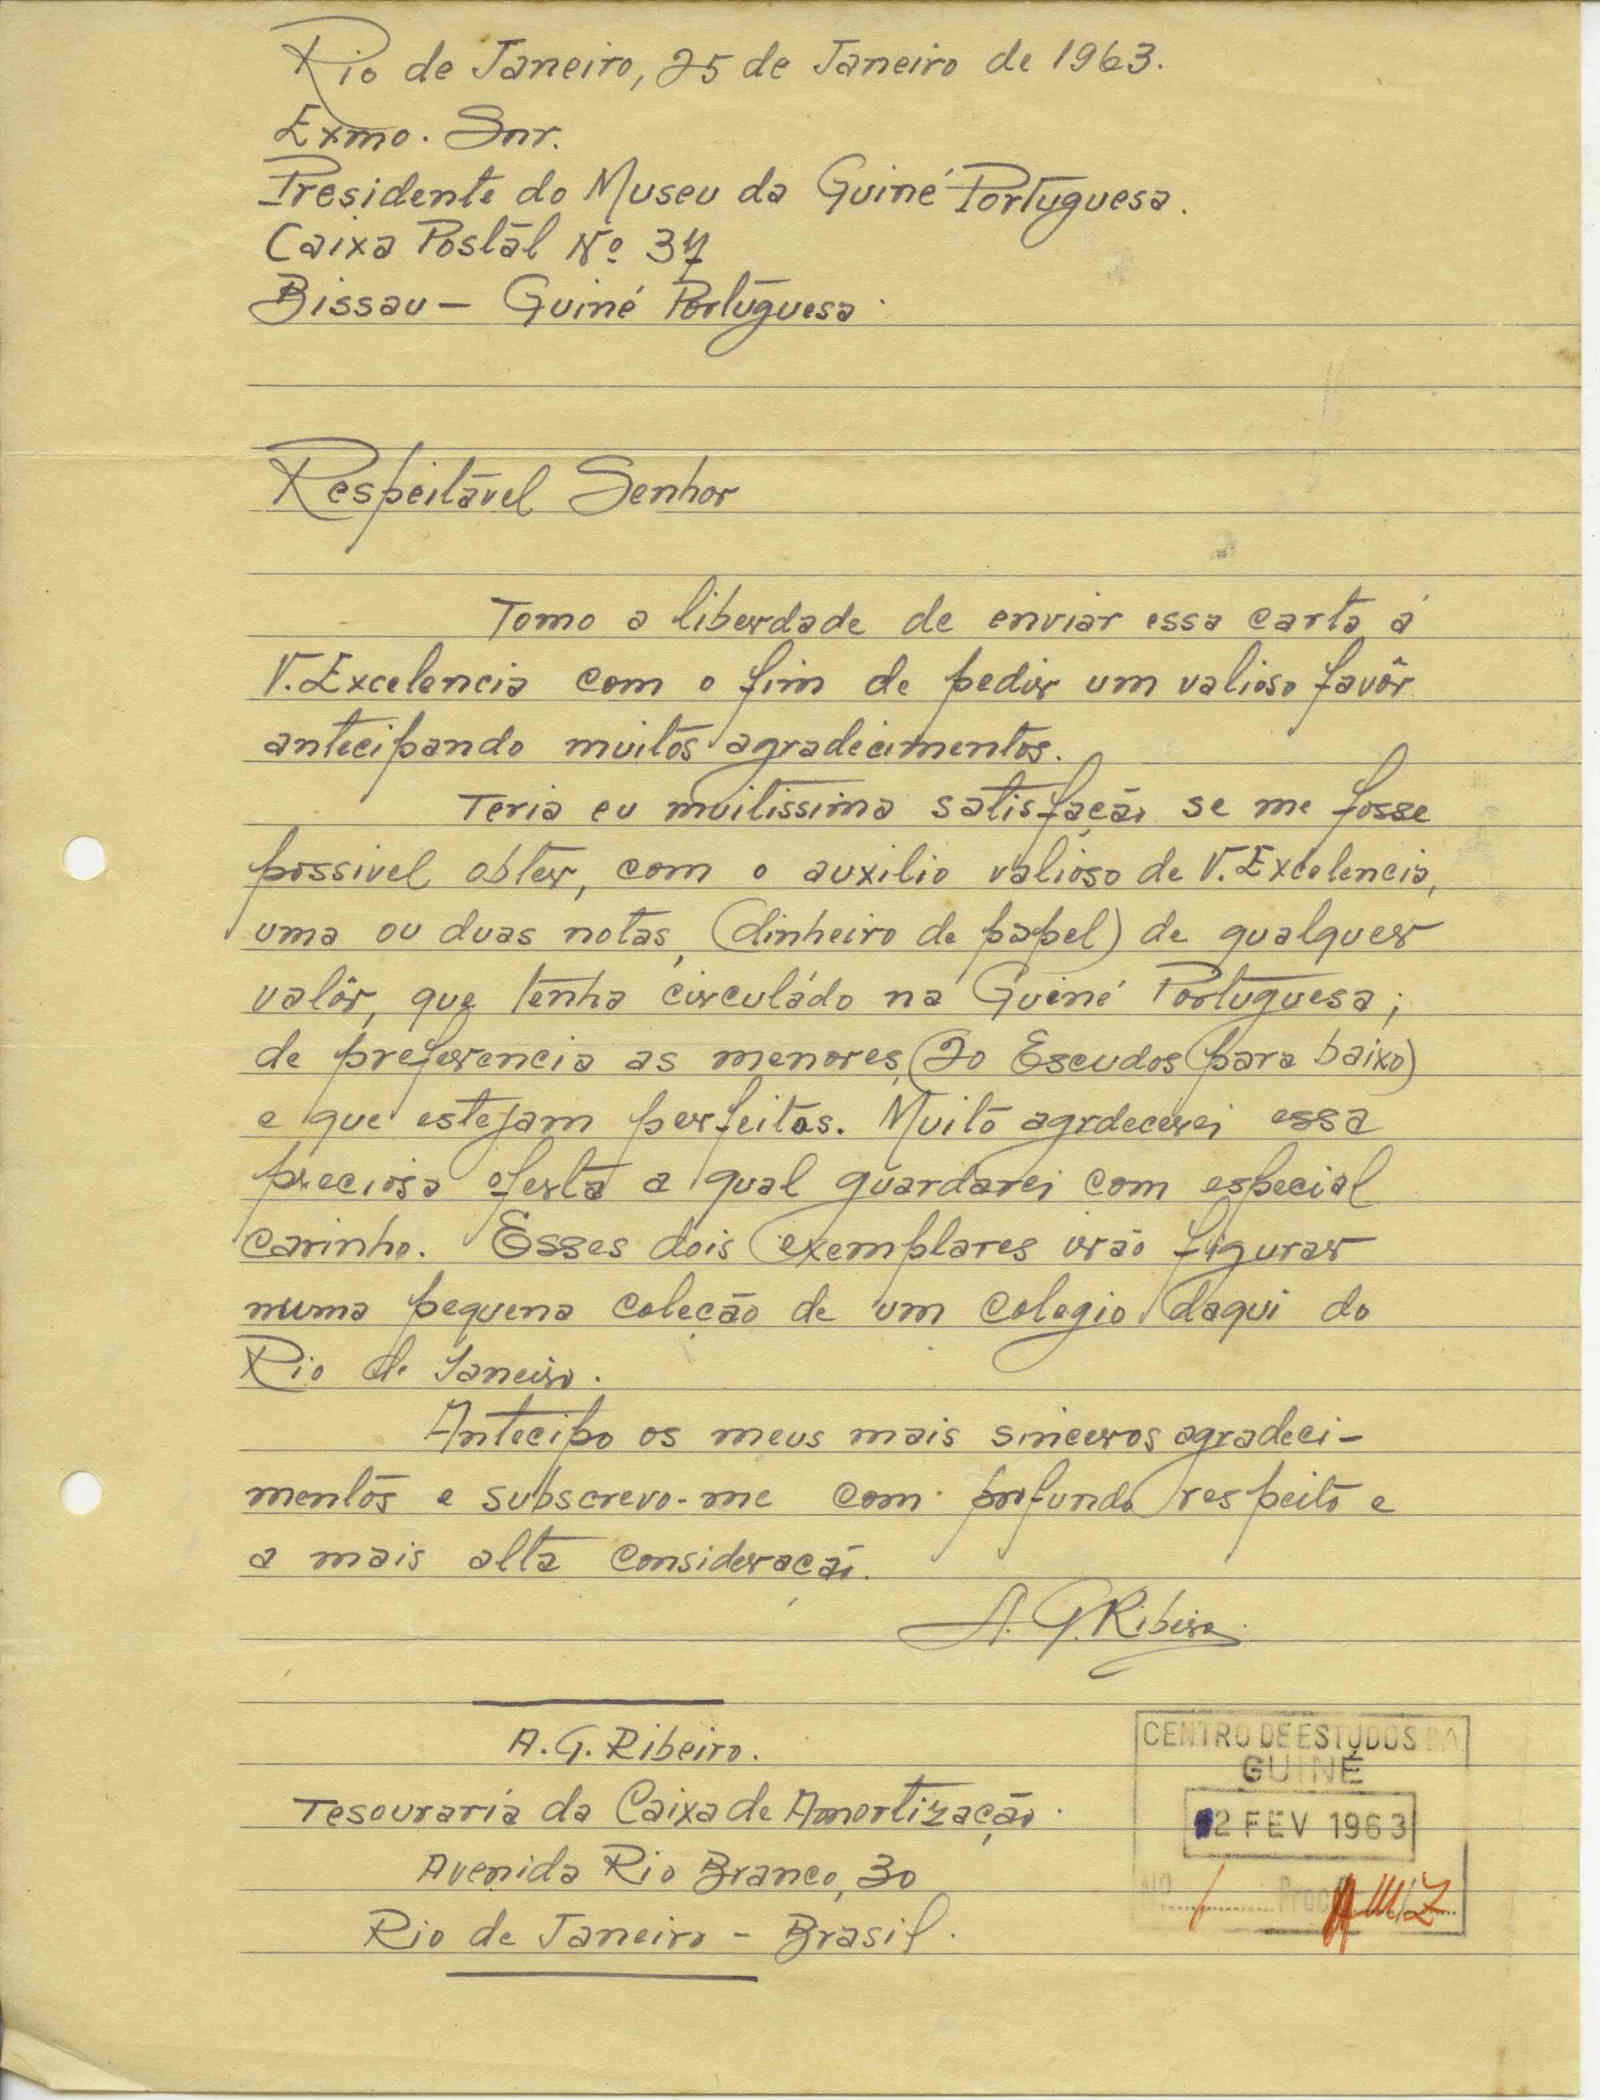 Rio de Janeiro, 25 de Janeiro de 1963.
Exmo. Snr.
Presidente do Museu da Guiné Portuguesa.
Caixa Postál Nº 37
Bissau — Guiné Portuguesa.
Respeitável Senhor
Tomo a liberdade de enviar essa carta á
V. Excelencia com o fim de pedir um valioso favôr
antecipando muitos agradecimentos.
Teria eu muitissima satisfação se me fosse
possivel obter, com o auxilio valioso de V. Excelencia,
uma ou duas notas, (dinheiro de papel) de qualquer
valôr, que tenha circuládo na Guiné Portuguesa;
de preferencia as menores, (20 Escudos para baixo)
e que estejam perfeitas. Muito agrdecerei essa
preciosa oferta a qual guardarei com especial
carinho. Esses dois exemplares irão figurar
numa pequena coleção de um colegio daqui do
Rio de Janeiro.
Antecipo os meus mais sinceros agradeci-
mentos e subscrevo-me com profundo respeito e
a mais alta consideração.
A. G. Ribeiro
A. G. Ribeiro.
Tesouraria da Caixa de Amortização.
Avenida Rio Branco, 30
Rio de Janeiro - Brasil.
CENTRO DE ESTUDOS DA
GUINÉ
12 FEV 1963
Nº Proc